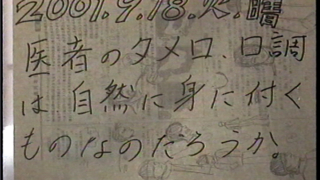 2001.9.18.火.曜
医者のタメロ、口調
は自然に身に付く
ものなのだろうか。